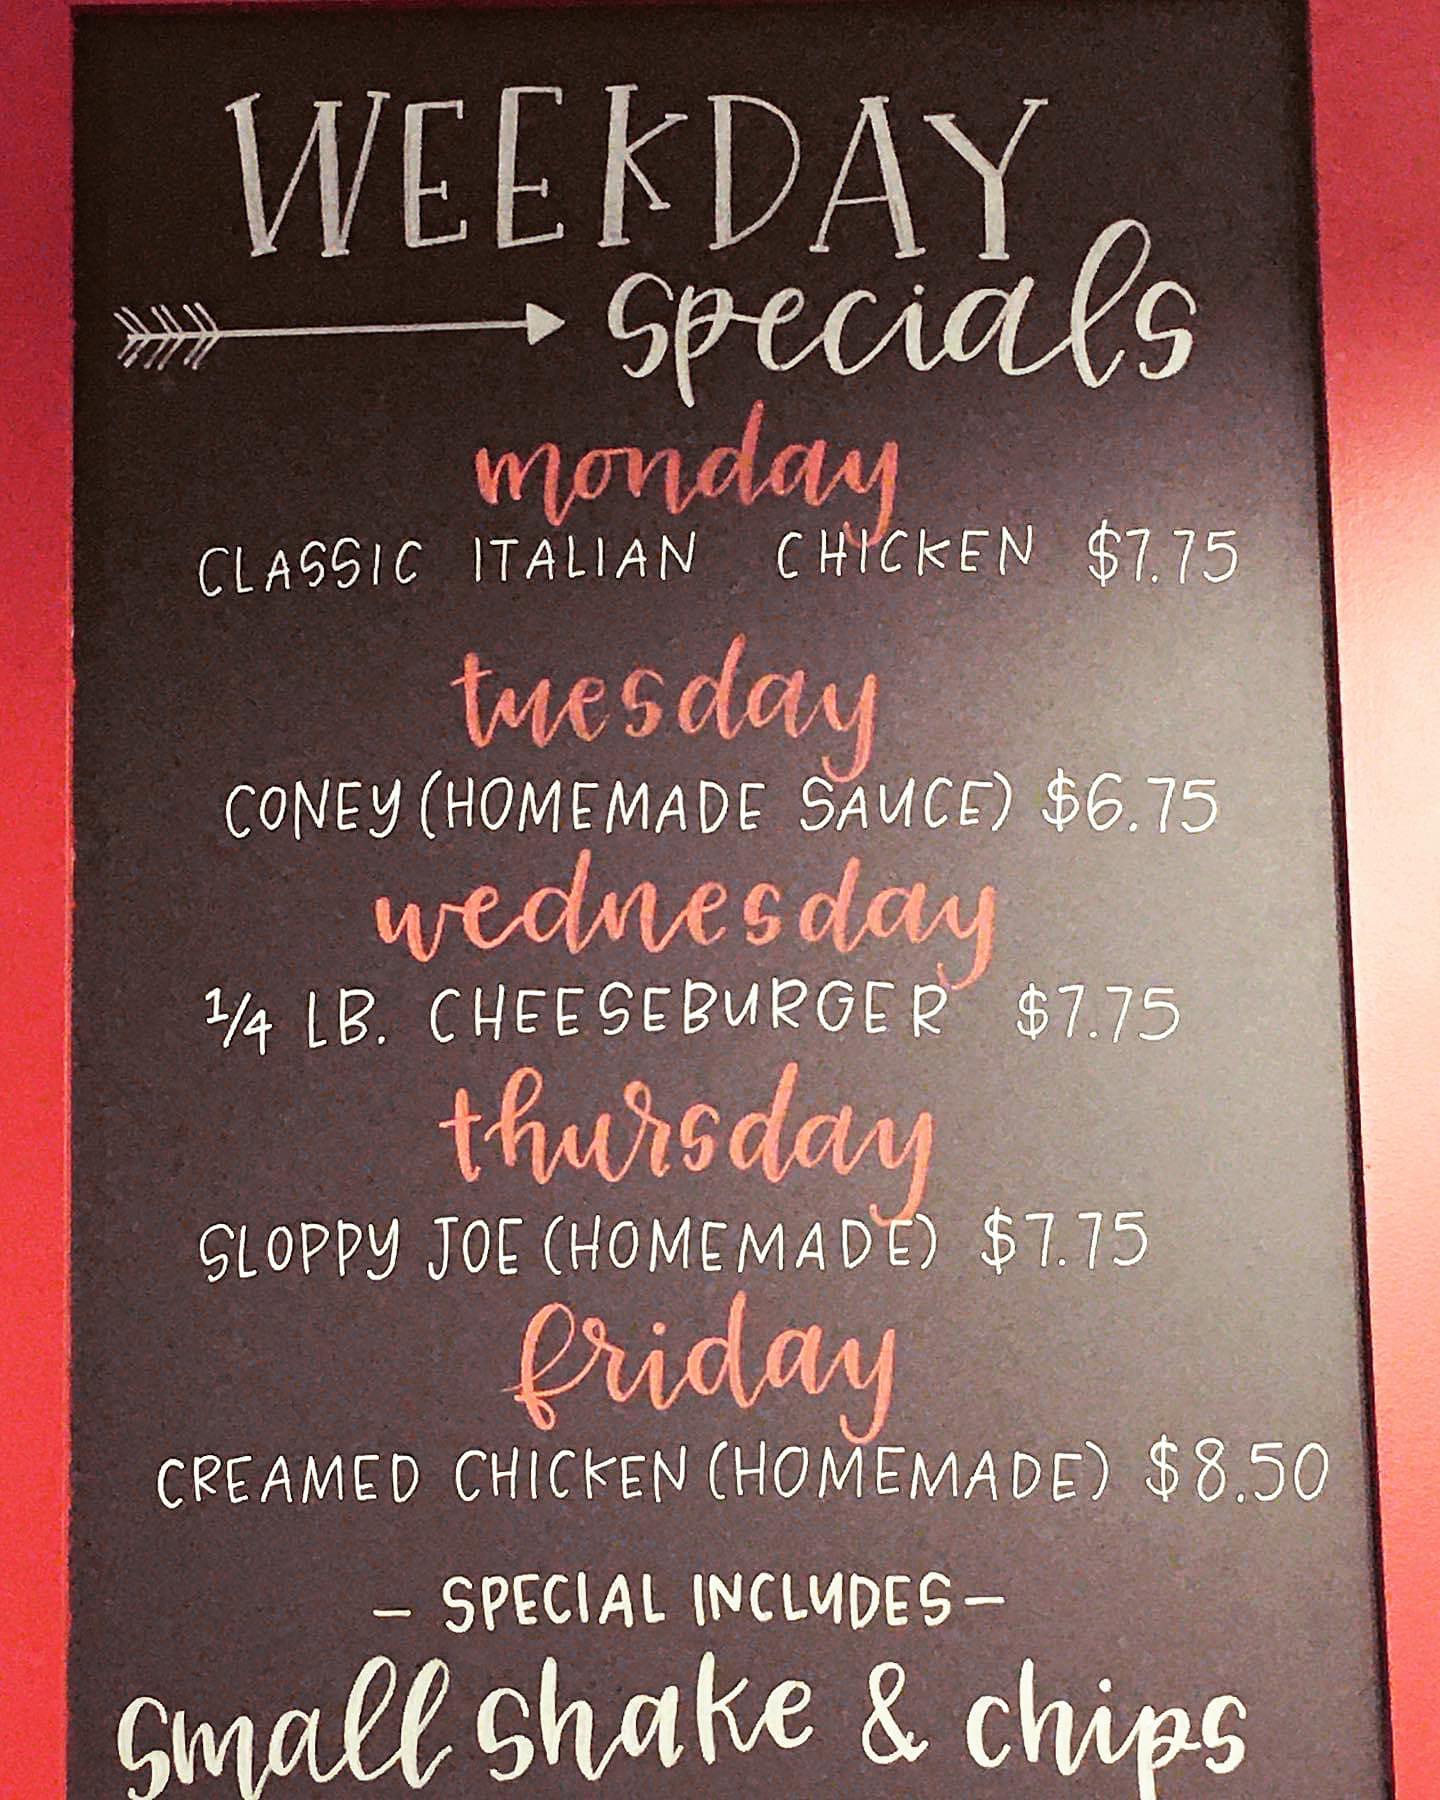 WEEKDAY
specials
monday
CLASSIC ITALIAN CHICKEN $7.75
tuesday
CONEY (HOMEMADE SAUCE) $6.75
wednesday
1/4 LB. CHEESEBURGER $7.75
thursday
SLOPPY JOE (HOMEMADE) $7.75
friday
CREAMED CHICKEN (HOMEMADE) $8.50
– SPECIAL INCLUDES –
small shake & chips